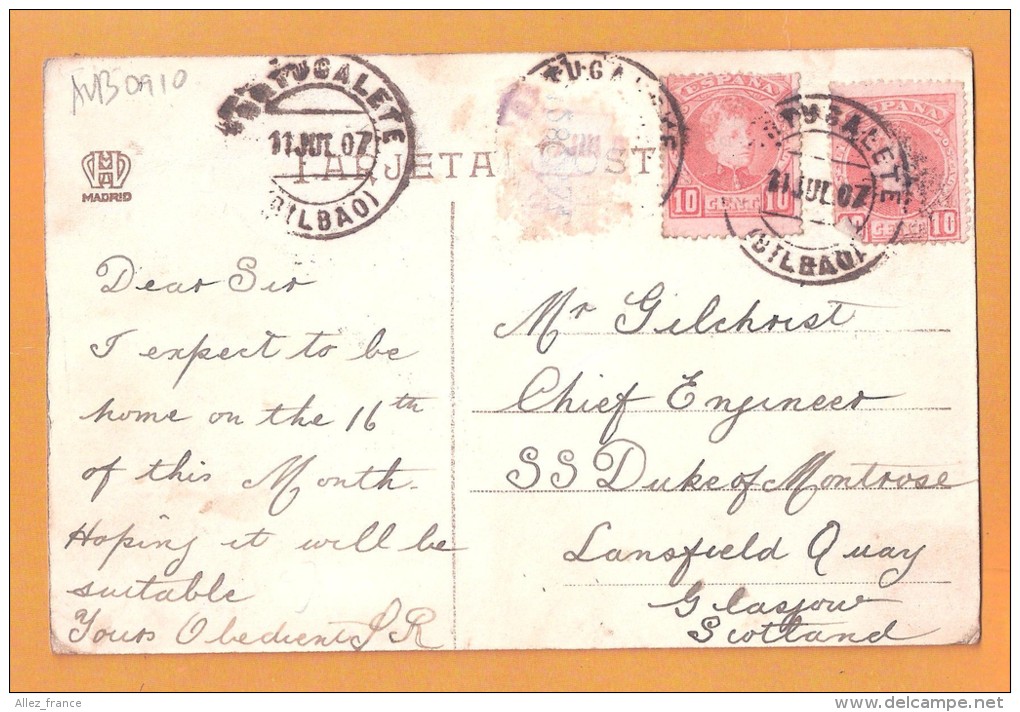 AVB0910
PORTUGALETE
11 JUL 07
(BILBAO)
TUGALETE
ESPAÑA
10 CENT. 10
PORTUGALETE
11 JUL 07
(BILBAO)
ESPAÑA
10
MADRID
TARJETA POST
Dear Sir
I expect to be
home on the 16th
of this Month.
Hoping it will be
suitable
Yours Obedient J R
Mr Gilchrist
Chief Engineer
SS Duke of Montrose
Lansfield Quay
Glasgow
Scotland
Allez_france
delcampe.net